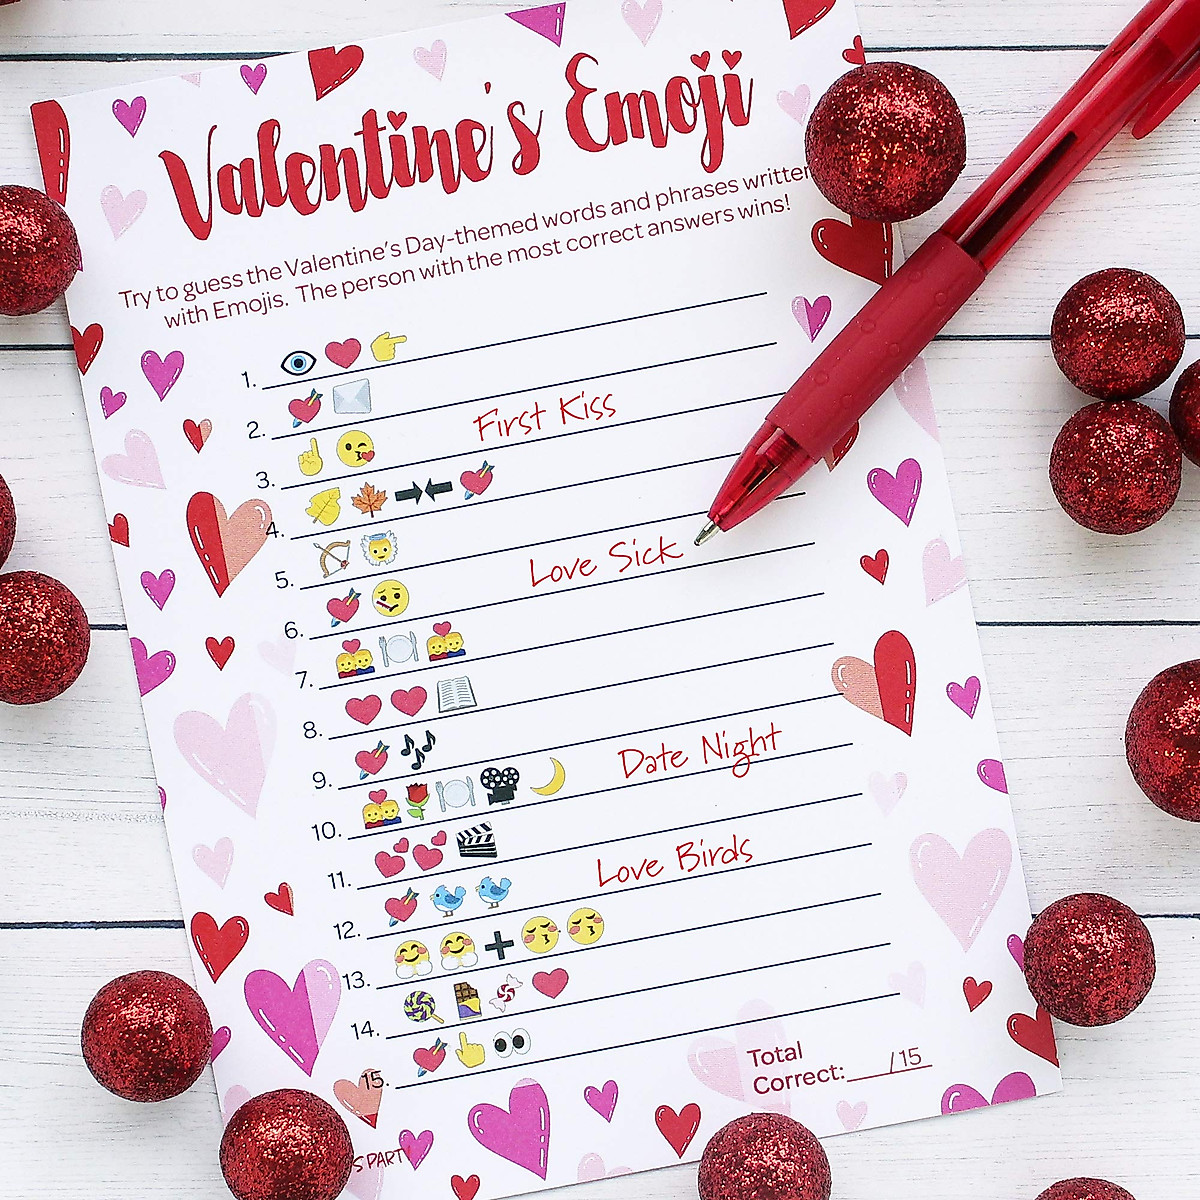 Valentine's Emoji
Try to guess the Valentine's Day-themed words and phrases written
with Emojis. The person with the most correct answers wins!
1.
2.
3. First Kiss
4.
5.
6. Love Sick
7.
8.
9.
10. Date Night
11.
12. Love Birds
13.
14.
15.
Total
Correct: /15
S PARTY